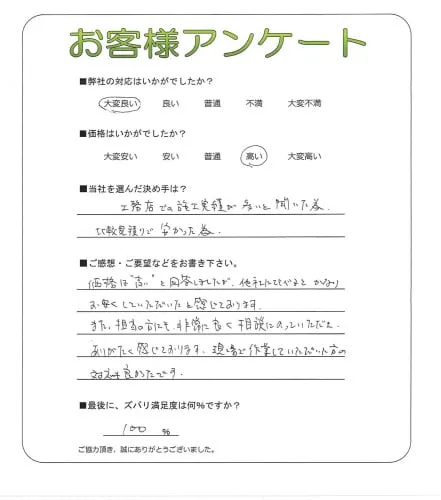 お客様アンケート
■弊社の対応はいかがでしたか？
大変良い 良い 普通 不満 大変不満
■価格はいかがでしたか？
大変安い 安い 普通 高い 大変高い
■当社を選んだ決め手は？
工務店での施工実績が多いと聞いた為.
比較見積りで安かった為.
■ご感想・ご要望などをお書き下さい。
価格は"高い"と回答しましたが、他社にくらべると かなり
お安くしていただいたと感じております.
また、担当の方にも非常に良く相談にのっていただき.
ありがたく感じております. 現場で作業していただいた方の
対応も良かったです.
■最後に、ズバリ満足度は何％ですか？
100 %
ご協力頂き、誠にありがとうございました。